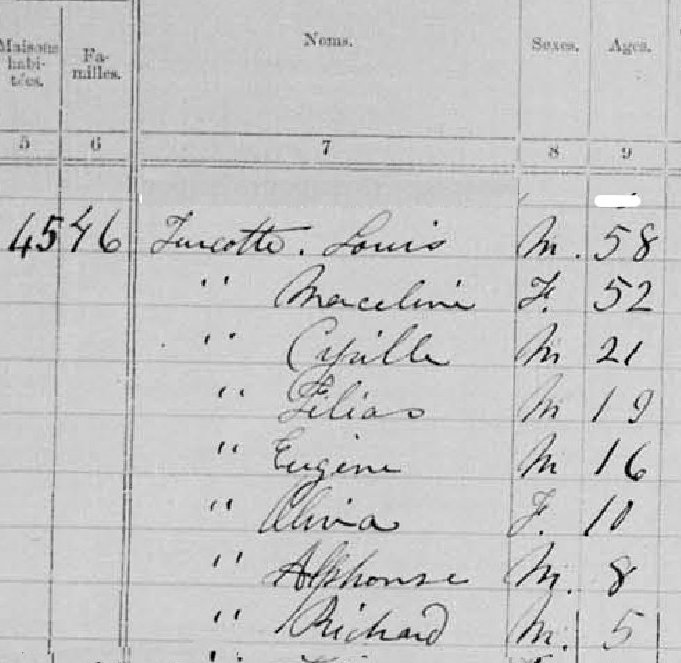 Maisons habitées. Familles. Noms. Sexes. Ages.
5 6 7 8 9
45 46 Turcotte. Louis M. 58
" Maceline F. 52
" Cyrille M 21
" Filias M 19
" Eugène M 16
" Olivia F. 10
" Alphonse M. 8
" Richard M. 5